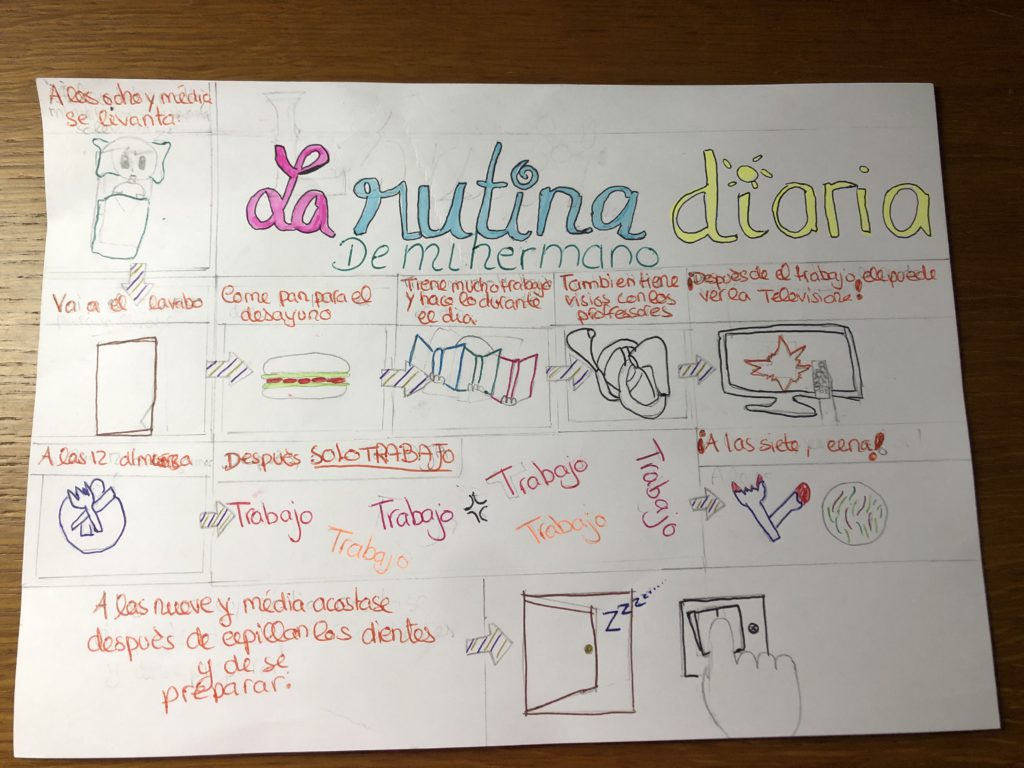 A las ocho y média
se levanta.
La rutina diaria
De mi hermano
Vai a el lavabo
Come pan para el
desayuno
Tiene mucho trabajo
y hace lo durante
el dia
Tambien tiene
visios con los
professores
¡Despues de el trabajo, el puede
ver la Televisione!
A las 12 almuerza
Después SOLO TRABAJO
Trabajo
Trabajo
Trabajo
Trabajo
Trabajo
Trabajo
¡A las siete, cena!
A las nueve y média acostase
después de cepillan los dientes
y de se
préparar.
Zzzz......